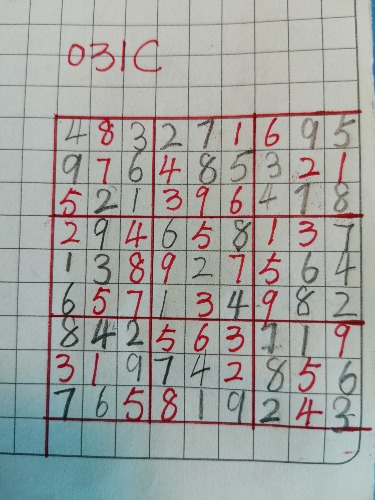 031C
4 8 3 2 7 1 6 9 5
9 7 6 4 8 5 3 2 1
5 2 1 3 9 6 4 7 8
2 9 4 6 5 8 1 3 7
1 3 8 9 2 7 5 6 4
6 5 7 1 3 4 9 8 2
8 4 2 5 6 3 7 1 9
3 1 9 7 4 2 8 5 6
7 6 5 8 1 9 2 4 3